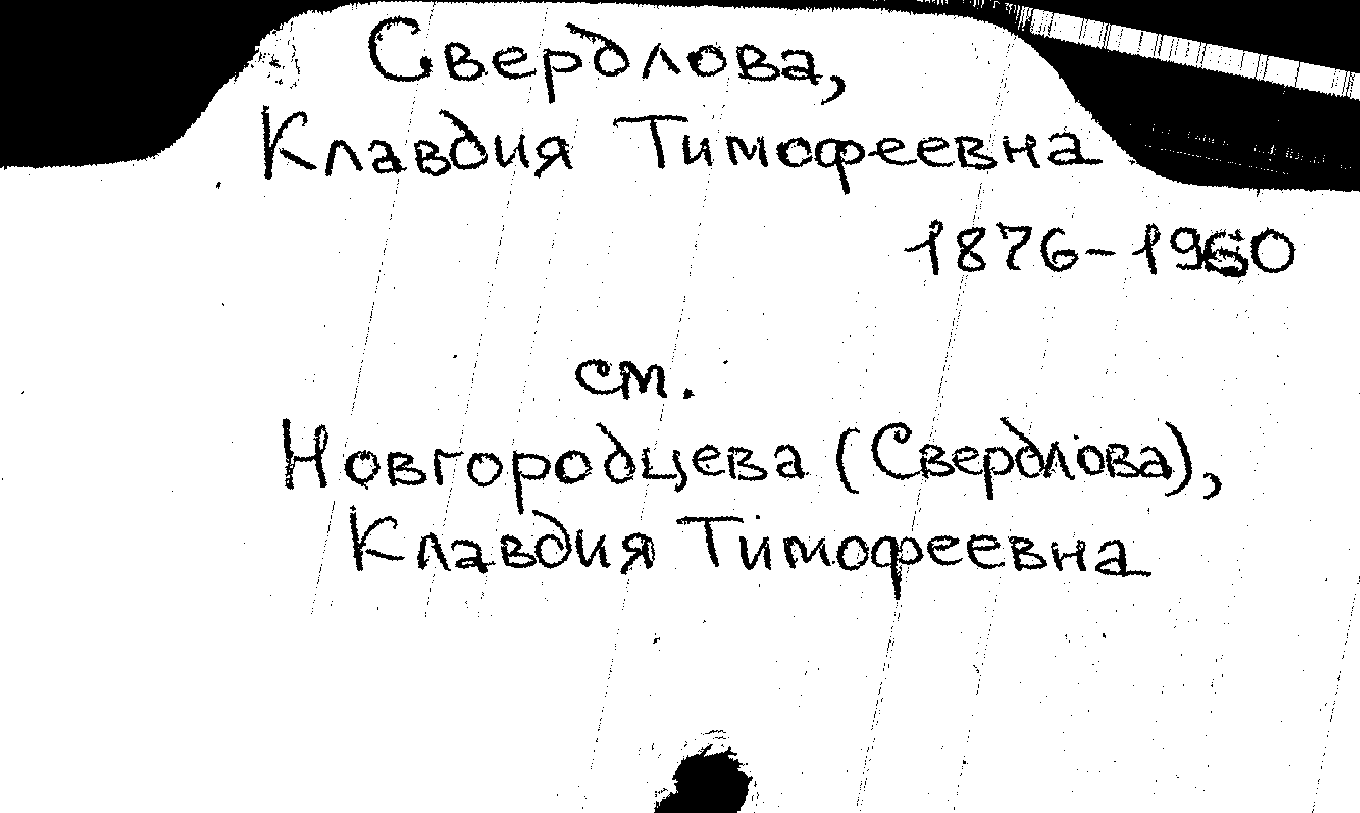 Свердлова,
Клавдия Тимофеевна
1876-1960
см.
Новгородцева (Свердлова),
Клавдия Тимофеевна